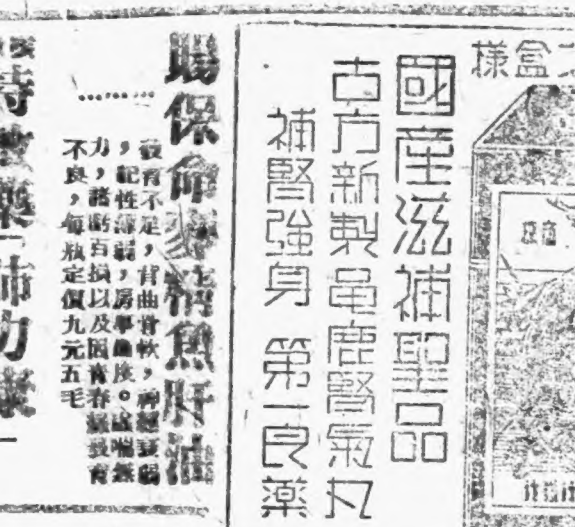 之盒樣
國産滋補聖品
古方新製龜鹿腎氣丸
補腎強身 第一良藥
賜保命 精魚肝油
發育不足，背曲骨軟，神經衰弱
，記性薄弱，房事 度。 喘無
力，諸虧百損以及因青春 發育
不良，每瓶定價九元五毛
特效藥 肺功